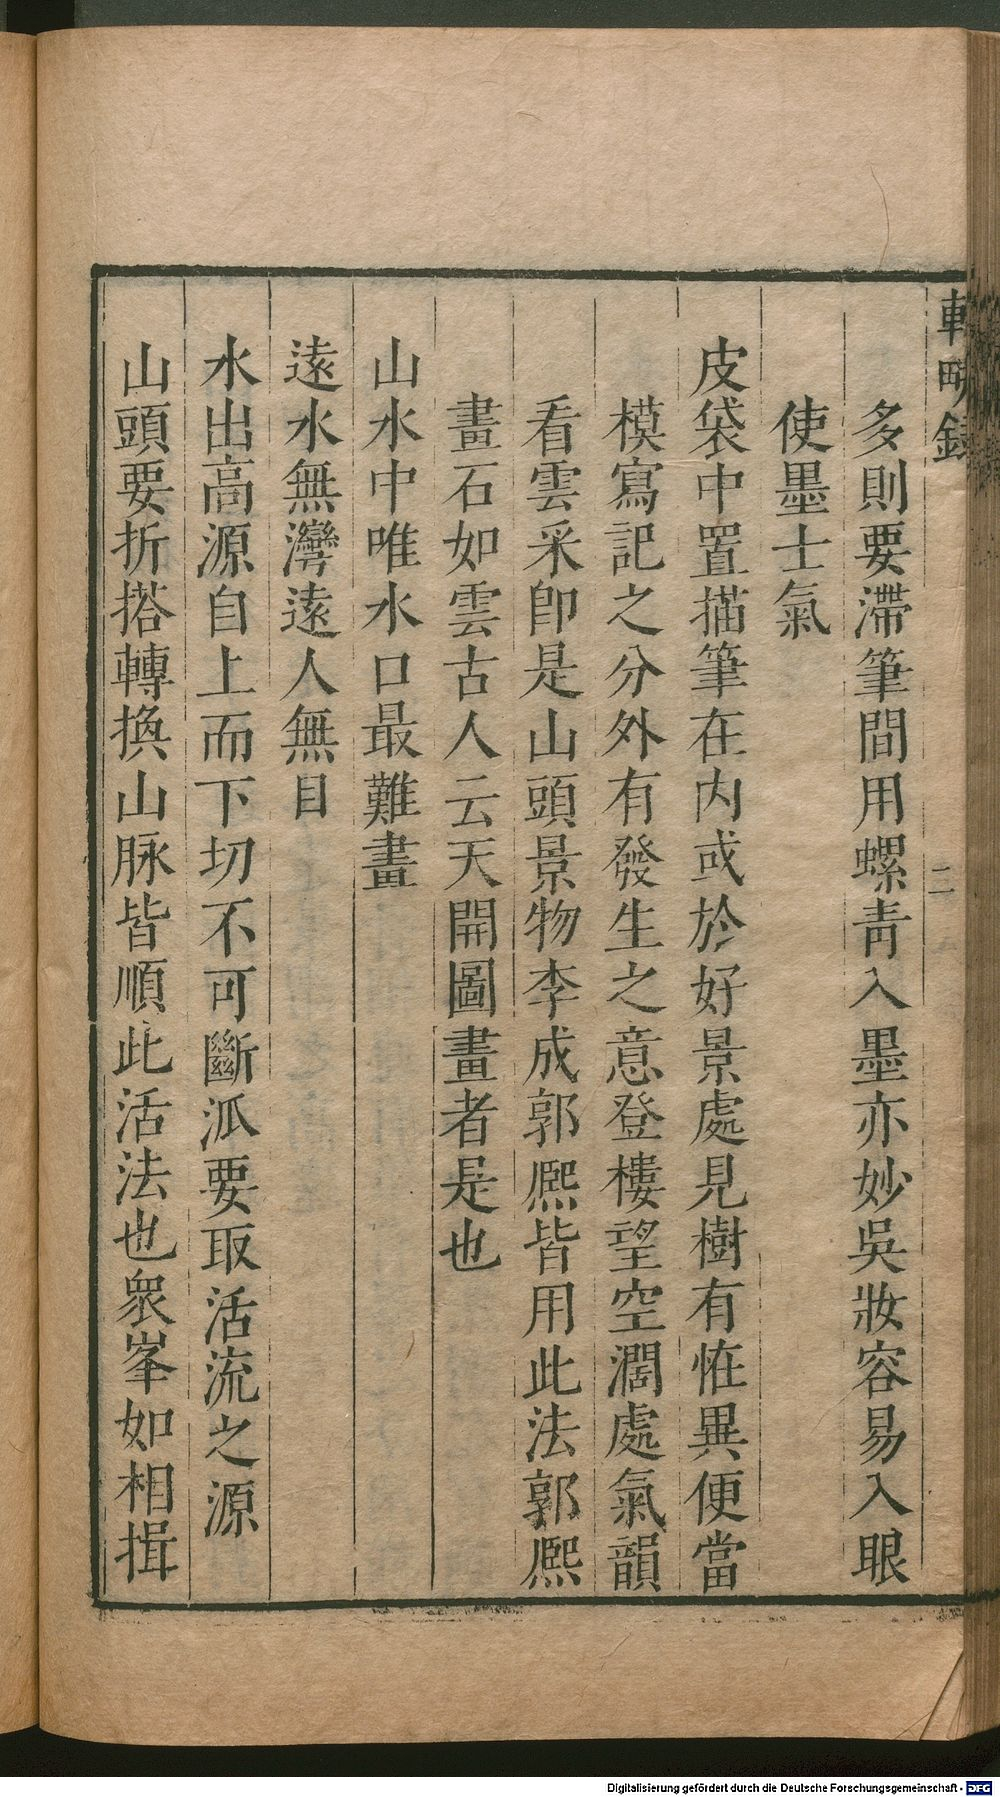 輟畊錄
二
多則要滯筆間用螺靑入墨亦妙吳妝容易入眼
使墨士氣
皮袋中置描筆在內或於好景處見樹有恠異便當
模寫記之分外有發生之意登樓望空濶處氣韻
看雲采卽是山頭景物李成郭熈皆用此法郭熈
畫石如雲古人云天開圖畫者是也
山水中唯水口最難畫
遠水無灣遠人無目
水出高源自上而下切不可斷派要取活流之源
山頭要折搭轉換山脉皆順此活法也衆峯如相揖
Digitalisierung gefördert durch die Deutsche Forschungsgemeinschaft - DFG